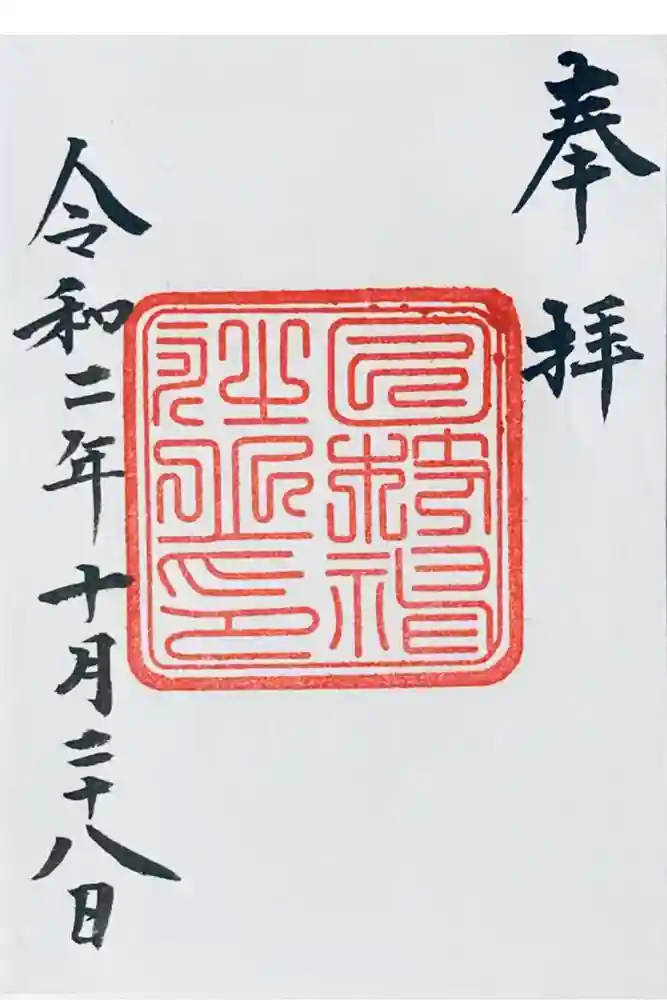 奉拝
令和二年十月二十八日